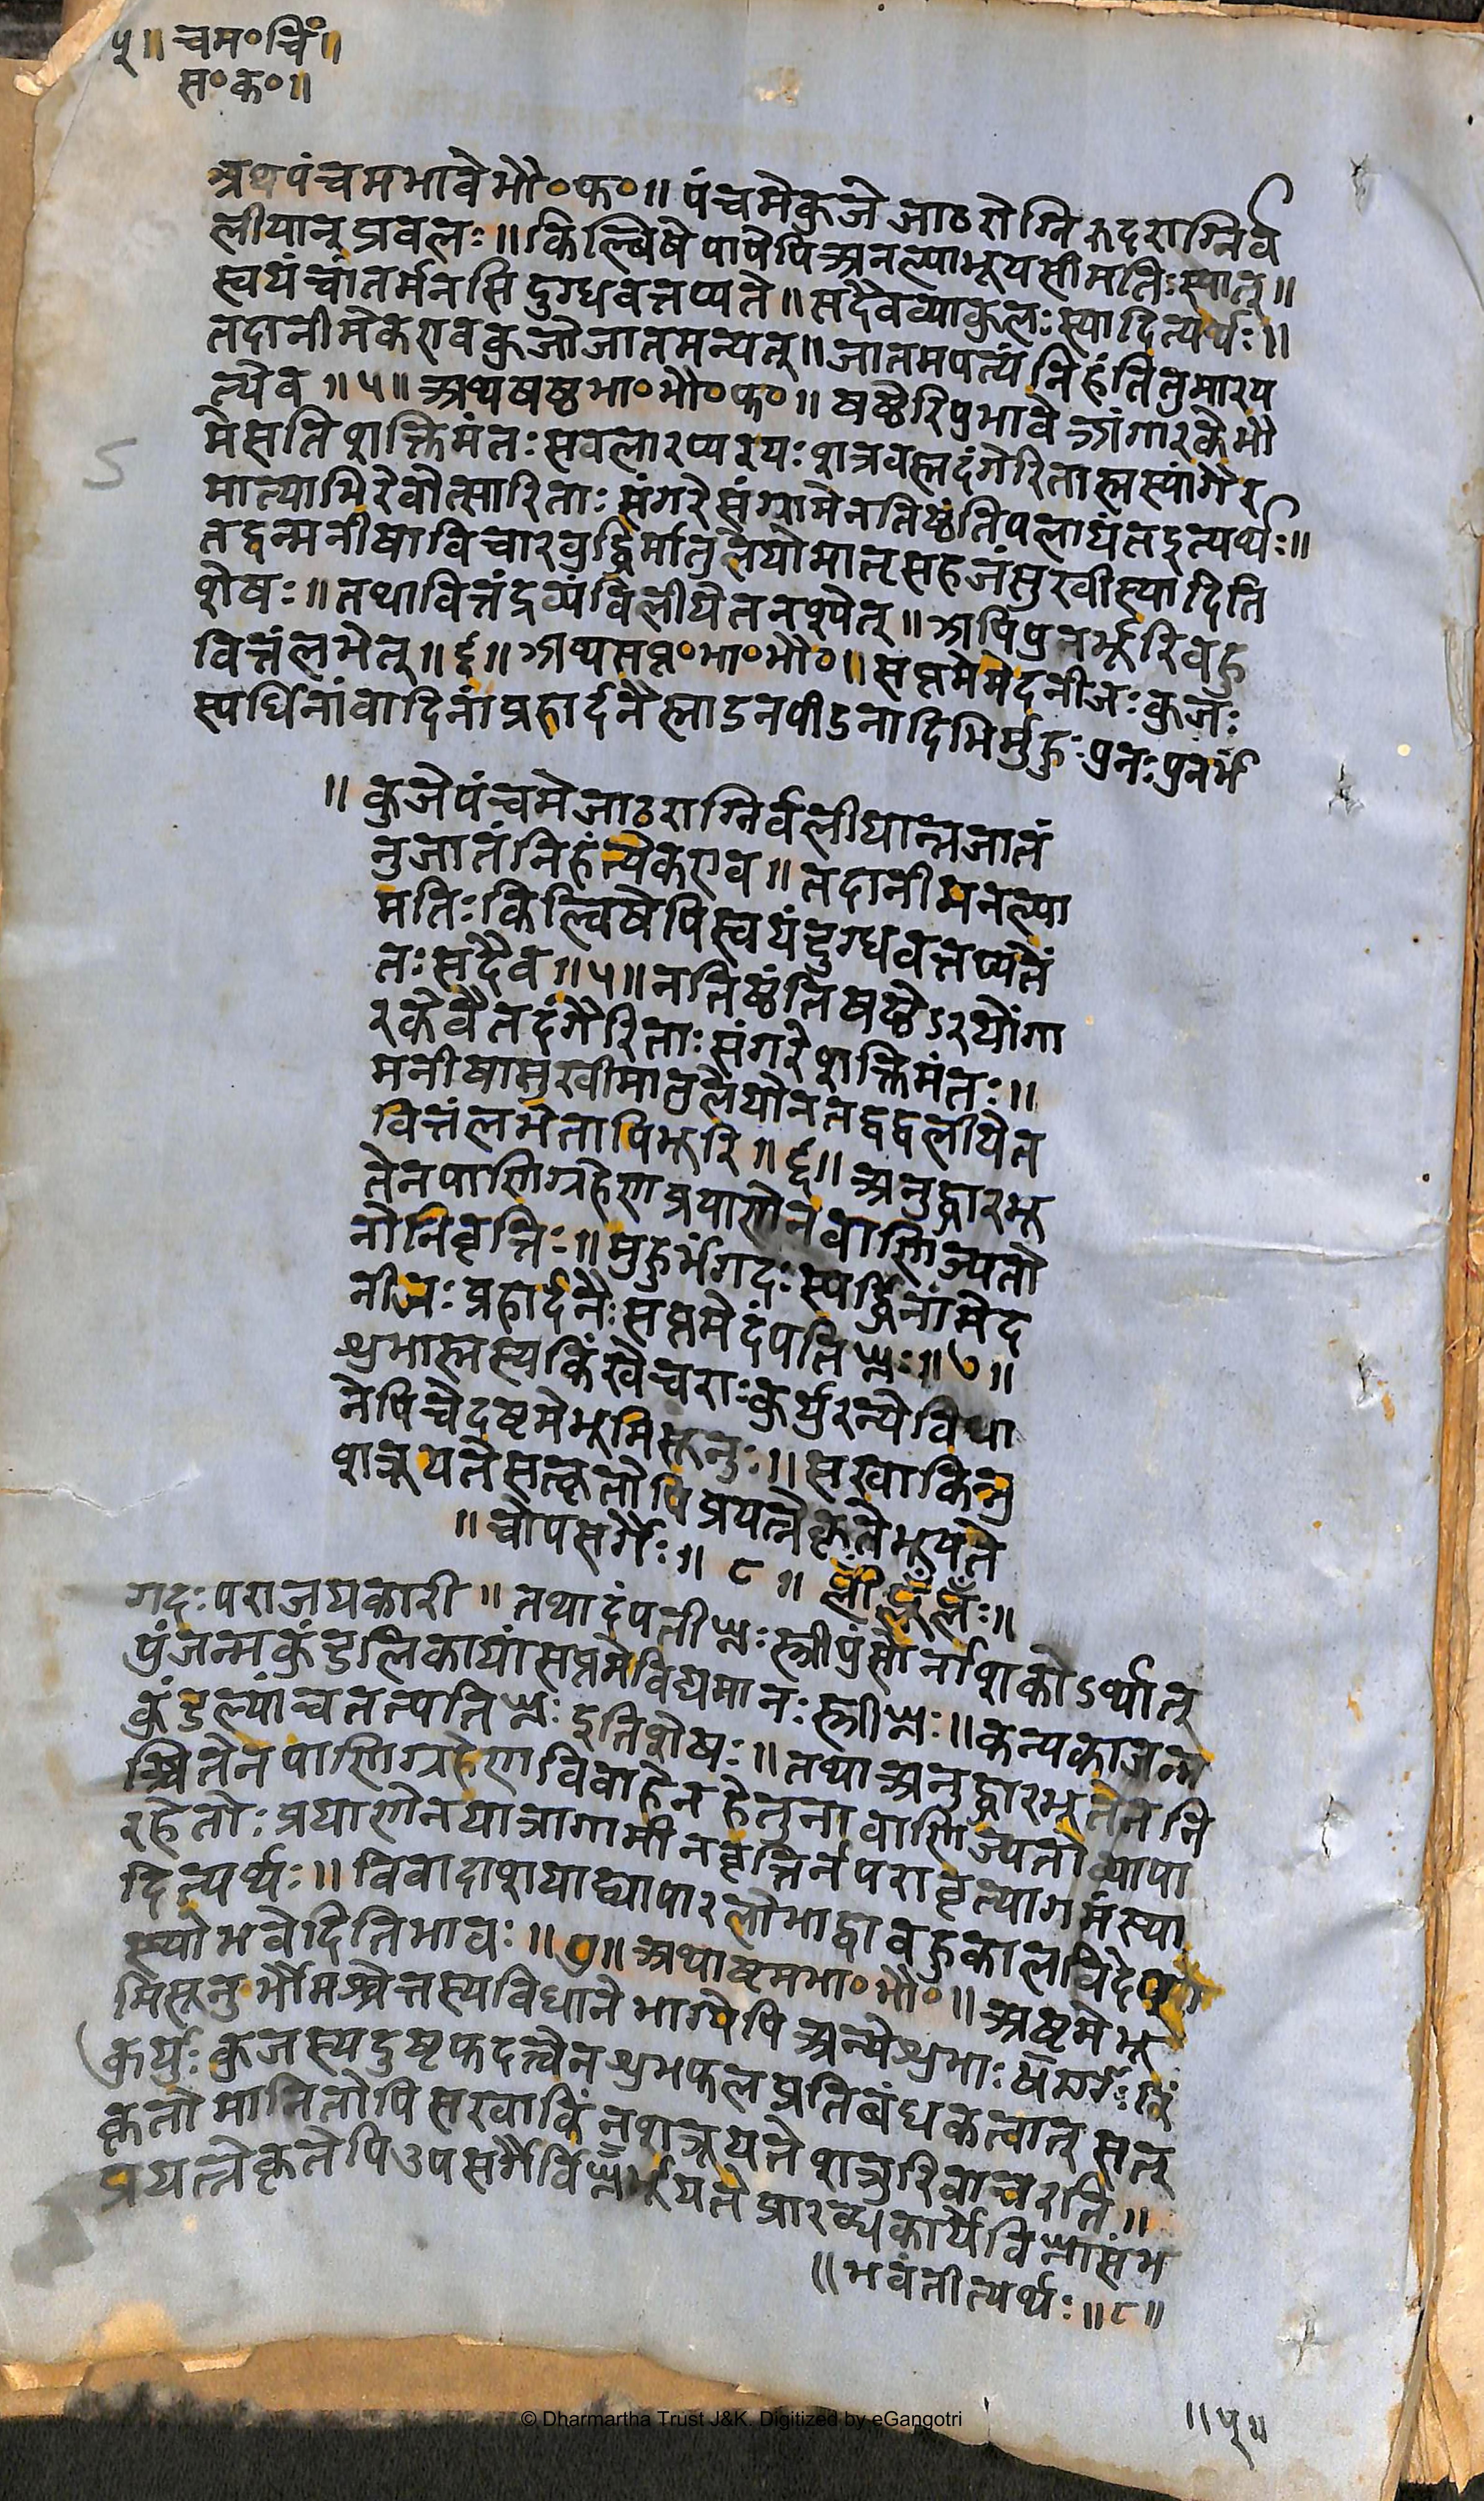 ५॥ चम॰चिं॥
स॰क॰॥
अथपंचमभावेभौ॰फ॰॥ पंचमेकुजेजाठरोग्निरुदराग्निर्व
लीयान् प्रवलः॥ किल्बिषेपापेपिअनल्पाभूयसीमतिःस्यात्॥
स्वयंचांतर्मनसिदुग्धवत्तप्यते॥ सदैवव्याकुलःस्यादित्यर्थः॥
तदानीमेकएवकुजोजातमन्यत्॥ जातमपत्यंनिहंतितुमारय
त्येव॥५॥ अथषष्ठभा॰भौ॰फ॰॥ षष्ठेरिपुभावेअंगारकेभौ
मेसतिशक्तिमंतःसवलारप्यरयःशत्रवस्तदंगेरितास्तस्यांगैर
मात्याभिरेवोत्सारिताः संगरेसंग्रामेनतिष्ठंतिपलायंतइत्यर्थः॥
तद्वन्मनीषाविचारवुद्धिर्मातुलेयोमातृसहजंसुखीस्यादिति
शेषः॥ तथावित्तंद्रव्यंविलीयेतनश्येत्॥ अपिपुनर्भूरिवहु
वित्तंलभेत्॥६॥ अथसप्त॰भा॰भौ॰॥ सप्तमेमेदनीजःकुजः
स्पर्धिनांवादिनांप्रहार्दनैस्ताडनपीडनादिभिर्मुहुःपुनःपुनर्भं
॥ कुजेपंचमेजाठराग्निर्वलीयान्नजातं
नुजातंनिहंत्येकएव॥ तदानीमनल्पा
मतिःकिल्विषेपिस्वयंदुग्धवत्तप्यतेतं
तःसदैव॥५॥ नतिष्ठंतिषष्ठेऽरयोंगा
रकेवैतदंगैरिताःसंगरेशक्तिमंतः॥
मनीषासुखीमातुलेयोनतद्वद्वलीयेत
वित्तंलभेतापिभूरि॥६॥ अनुद्धारभू
तेनपाणिग्रहेणप्रयाणेनवाणिज्यतो
नोनिवृत्तिः॥ मुहुर्भंगदःस्पर्द्धिनांमेद
नीजःप्रहार्दनैःसप्तमेदंपतिघ्नः॥७॥
शुभास्तस्यकिंखेचराःकुर्युरन्येविधा
नेपिचेदष्टमेभूमिसूनुः॥ सखाकिंनु
शत्रूयतेसत्कृतोपिप्रयत्नेकृतेभूयते
॥ चोपसर्गैः॥ ८॥
गदःपराजयकारी॥ तथादंपतीघ्नःस्त्रीपुंसोर्नाशकोऽर्थात्
पुंजन्मकुंडलिकायांसप्तमेविद्यमानःस्त्रीघ्नः॥ कन्यकाजन्म
कुंडल्यांचतत्पतिघ्नः इतिशेषः॥ तथाअनुद्धारभूतेननि
श्चितेनपाणिग्रहेणविवाहेनहेतुनावाणिज्यतोव्यापा
रहेतोःप्रयाणेनयात्रागामीनवृत्तिर्नपरावृत्यागमंस्या
दित्यर्थः॥ विवादाशयाद्व्यापारलोभाद्वावहुकालविदेश
स्थोभवेदितिभावः॥७॥ अथाष्टमभा॰भौ॰॥ अष्टमेभू
मिसूनुर्भौमश्चेत्तस्यविधानेभाग्येपिअन्येशुभाः किं
कुर्युःकुजस्यदुष्टफदत्वेनशुभफलप्रतिबंधकत्वात् सत्
कृतोमानितोपिसखाकिंनुशत्रूयतेशत्रुरिवाचरति॥
प्रयत्नेकृतेपिउपसर्गैर्विघ्नैर्भूयतेप्रारब्धकार्येविघ्नासंभ
॥भवंतीत्यर्थः॥८॥
॥५॥
5
© Dharmartha Trust J&K. Digitized by eGangotri